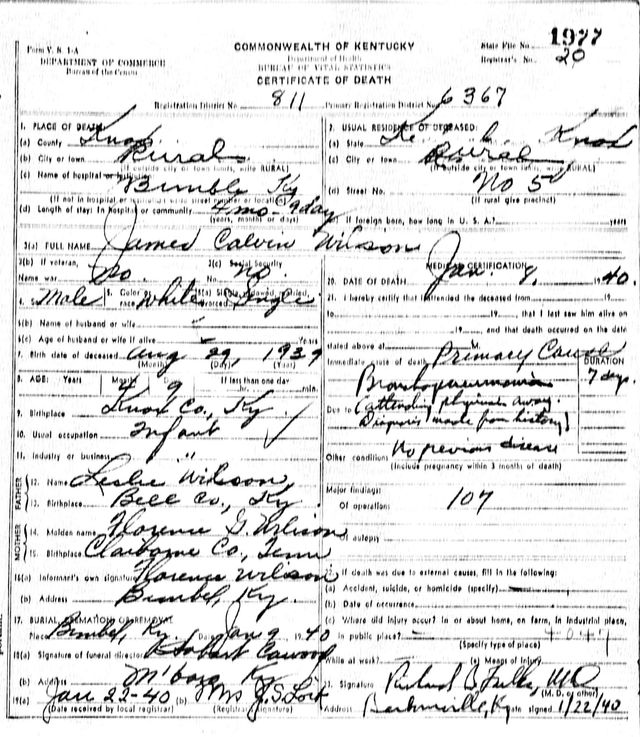 Form V. S. 1-A
DEPARTMENT OF COMMERCE
Bureau of the Census
COMMONWEALTH OF KENTUCKY
Department of Health
BUREAU OF VITAL STATISTICS
CERTIFICATE OF DEATH
State File No. 1977
Registrar's No. 20
Registration District No. 811 Primary Registration District No. 6367
1. PLACE OF DEATH
(a) County Knox
(b) City or town Rural
(If outside city or town limits, write RURAL)
(c) Name of hospital or institution
Bimble Ky
(If not in hospital or institution write street number or location)
(d) Length of stay: In hospital or community 4 mo - 9 day
(years, months or days)
2. USUAL RESIDENCE OF DECEASED:
(a) State Ke (b) Knox
(c) City or town Rural
(If outside city or town limits, write RURAL)
(d) Street No. No 5
(If rural give precinct)
If foreign born, how long in U. S. A.? years
3(a) FULL NAME James Calvin Wilson
3(b) If veteran, Name war No
3(c) Social Security No. no
4. Male 5. Color race White Single
6(b) Name of husband or wife
6(c) Age of husband or wife if alive years
7. Birth date of deceased Aug 29, 1939
(Month) (Day) (Year)
8. AGE: Years Months Days If less than one day
4 9 min.
9. Birthplace Knox Co., Ky.
10. Usual occupation Infant
11. Industry or business "
FATHER
12. Name Leslie Wilson
13. Birthplace Bell Co., Ky.
MOTHER
14. Maiden name Florence G. Wilson
15. Birthplace Claiborne Co., Tenn
16(a) Informant's own signature Florence Wilson
(b) Address Bimbel, Ky.
17. BURIAL, CREMATION OR REMOVAL
Place Bimbel, Ky. Date Jan 9 1940
18(a) Signature of funeral director Hobart Cawood
(b) Address M'boro Ky
19(a) Jan 22-40 (b) Mrs J. S. Lock
(Date received by local registrar) (Registrar's signature)
MEDICAL CERTIFICATION
20. DATE OF DEATH Jan. 1940
21. I hereby certify that I attended the deceased from , 19
to , 19 , that I last saw him alive on
, 19 , and that death occurred on the date
stated above at M.
Immediate cause of death Primary Cause
DURATION
Bronchopneumonia 7 days
Due to (attending physician away.
Diagnosis made from history)
Other conditions No previous disease
(Include pregnancy within 3 months of death)
Major findings: 107
Of operations
Of autopsy
22. If death was due to external causes, fill in the following:
(a) Accident, suicide, or homicide (specify)
(b) Date of occurrence
(c) Where did injury occur? In or about home, on farm, in industrial place,
in public place?
(Specify type of place)
While at work? (e) Means of injury
23. Signature B. M.D.
(M. D. or other)
Address Barbourville, Ky Date signed 1/22/40